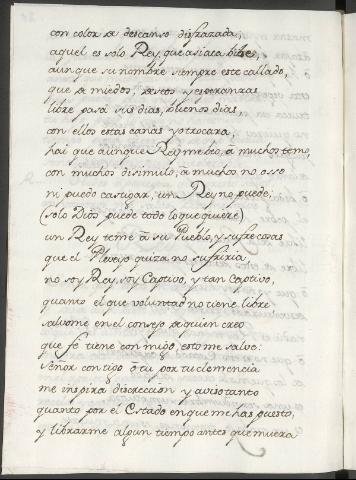 con color de descanso disfrazada,
aquel es solo Rey, que asi acá bive,
aunque su nombre siempre esté callado,
que de miedos, restos y esperanzas
libre pasa sus dias, buenos dias,
con ellos estas canas yo trocara,
hai que aunque Rey me veo, à muchos temo,
con muchos disimulo, à muchos no osso
ni puedo castigar, un Rey no puede,
(solo Dios puede todo lo que quiere)
un Rey teme à su Pueblo, y sufre cosas
que el Plevejo quiza no sufriria
no soy Rey, soy Captivo, y tan Captivo,
quanto el que voluntad no tiene libre
salvome en el consejo de quien creo
que fe tiene conmigo, esto me salve:
Señor contigo ò tu por tu clemencia
me inspira discrecion y aviso tanto
quanto por el Estado en que me has puesto,
y librarme algun tiempo antes que muera